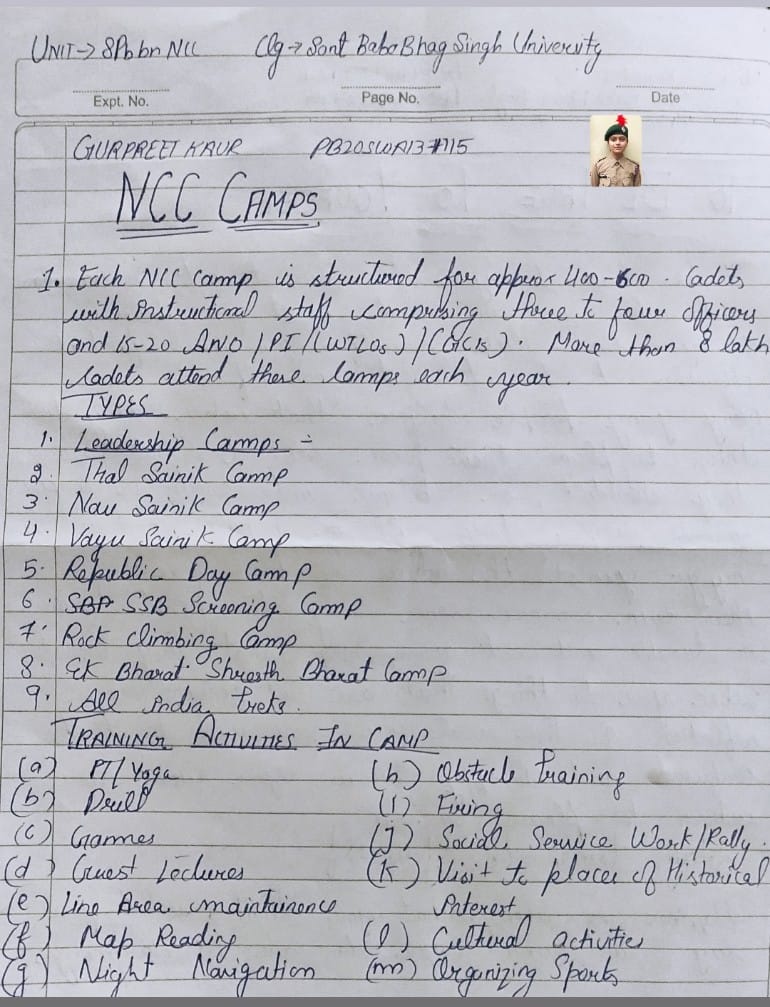 UNIT → 8Pb bn NCC Clg → Sant Baba Bhag Singh University
Expt. No. Page No. Date
GURPREET KAUR PB20SWA137115
NCC CAMPS
1. Each NCC camp is structured for approx 400-600. Cadets
with Instructional staff comprising three to four Officers
and 15-20 ANO / PI / (WTLOs) / (GCIs). More than 8 lakh
Cadets attend these Camps each year.
TYPES
1. Leadership Camps :-
2. Thal Sainik Camp
3. Nau Sainik Camp
4. Vayu Sainik Camp
5. Republic Day Camp
6. SSB Screening Camp
7. Rock climbing Camp
8. EK Bharat Shresth Bharat Camp
9. All india treks.
TRAINING ACTIVITIES IN CAMP
(a) PT/Yoga (h) Obstacle training
(b) Drill (i) Firing
(c) Games (j) Social Service Work/Rally.
(d) Guest Lectures (k) Visit to places of Historical
(e) Line Area maintainence Interest
(f) Map Reading (l) Cultural activities
(g) Night Navigation (m) Organizing Sports